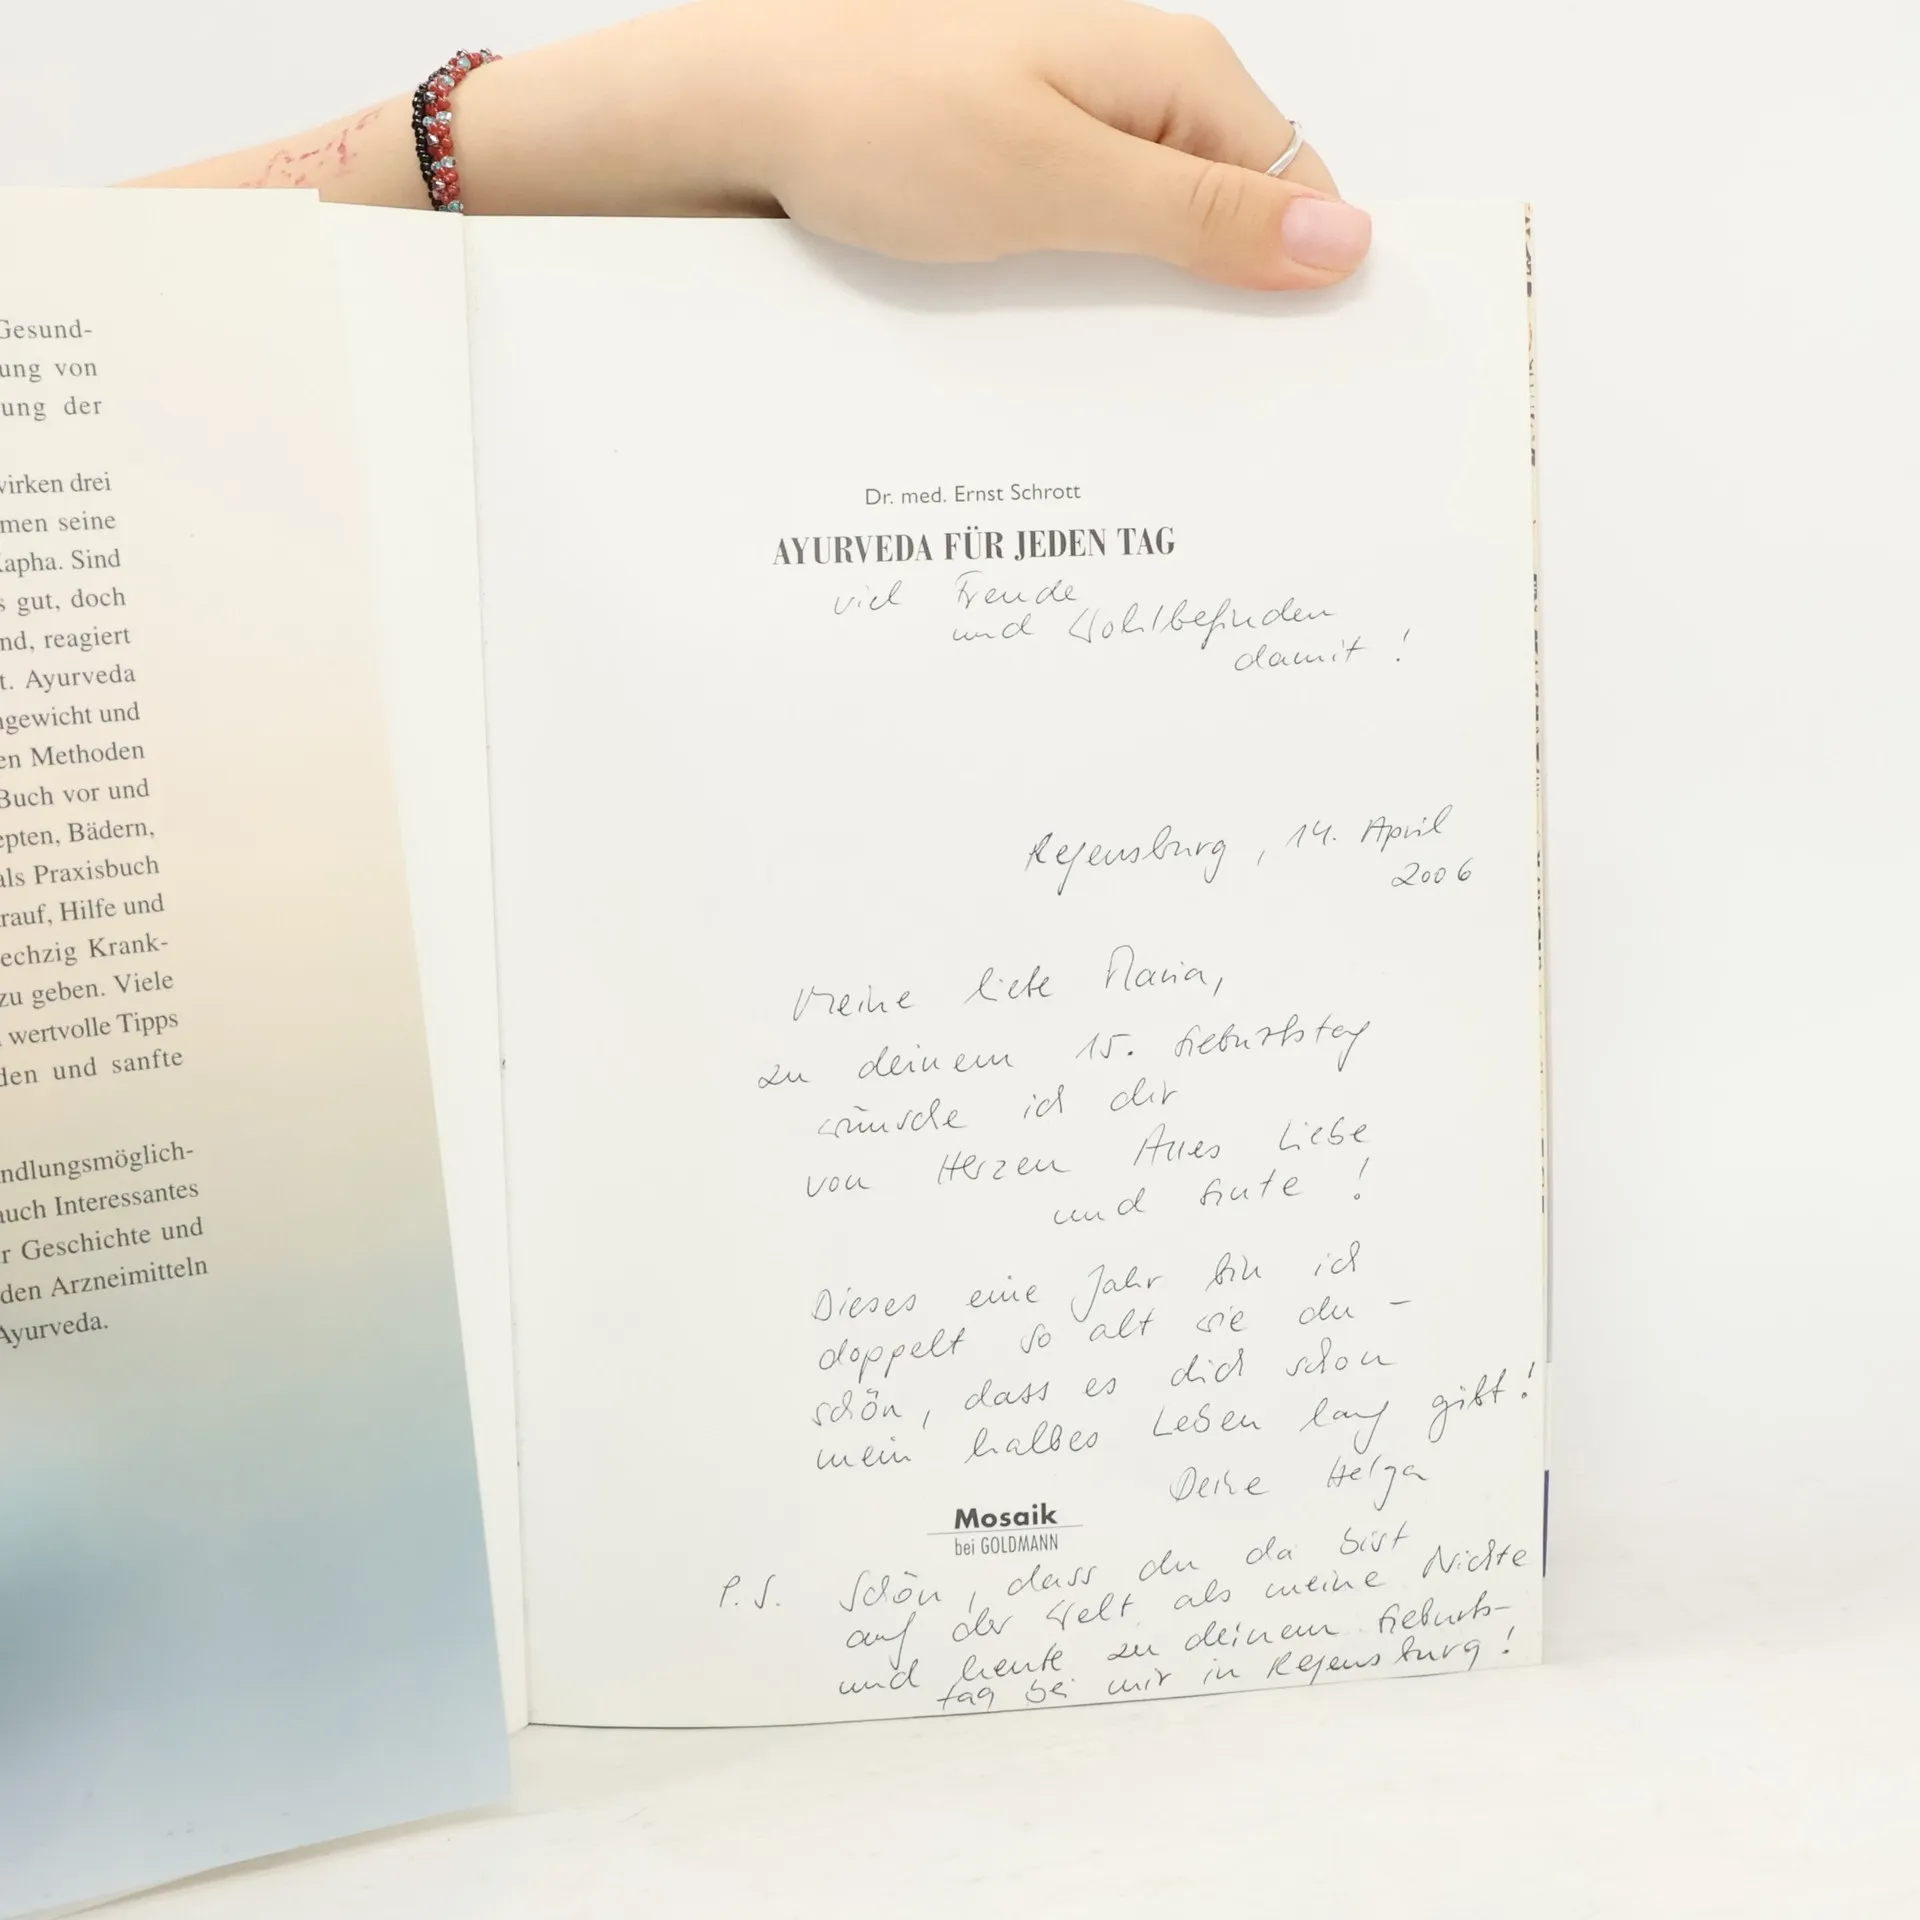 Gesund-
ung von
ung der
wirken drei
men seine
Kapha. Sind
s gut, doch
nd, reagiert
t. Ayurveda
hgewicht und
en Methoden
Buch vor und
epten, Bädern,
als Praxisbuch
rauf, Hilfe und
echzig Krank-
zu geben. Viele
wertvolle Tipps
den und sanfte
ndlungsmöglich-
auch Interessantes
r Geschichte und
den Arzneimitteln
Ayurveda.
Dr. med. Ernst Schrott
AYURVEDA FÜR JEDEN TAG
viel Freude
und Wohlbefinden
damit !
Regensburg, 14. April
2006
Meine liebe Maria,
zu deinem 15. Geburtstag
wünsche ich dir
von Herzen Alles Liebe
und Gute !
Dieses eine Jahr bin ich
doppelt so alt wie du -
schön, dass es dich schon
mein halbes Leben lang gibt !
Deine Helga
Mosaik
bei GOLDMANN
P.S. Schön, dass du da bist
auf der Welt als meine Nichte
und heute zu deinem Geburts-
tag bei mir in Regensburg !